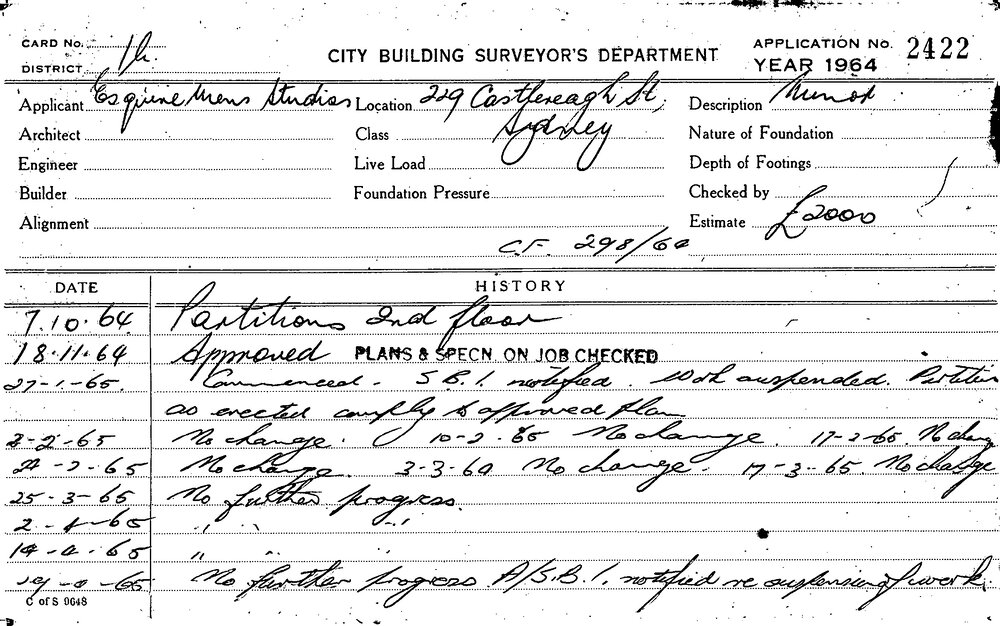 CARD No. 1h.
CITY BUILDING SURVEYOR'S DEPARTMENT
APPLICATION No. 2422
DISTRICT
YEAR 1964
Applicant Esquire Mens Studios Location 229 Castlereagh St, Description Minor
Architect Class Sydney Nature of Foundation
Engineer Live Load Depth of Footings
Builder Foundation Pressure Checked by
Alignment Estimate £2000
C.F. 298/64
DATE HISTORY
7.10.64 Partitions 2nd floor
18.11.64 Approved PLANS & SPECN ON JOB CHECKED
27-1-65. Commenced - S.B.I. notified. Work suspended. Partition
as erected comply to approved plan
3-2-65 No change. 10-2-65 No change. 17-2-65. No change
24-2-65 No change. 3-3-60 No change. 17-3-65 No change
25-3-65 No further progress.
2-4-65 " " "
14-4-65 " " "
29-4-65 No further progress A/S.B.I. notified re suspension of work.
C of S 9648